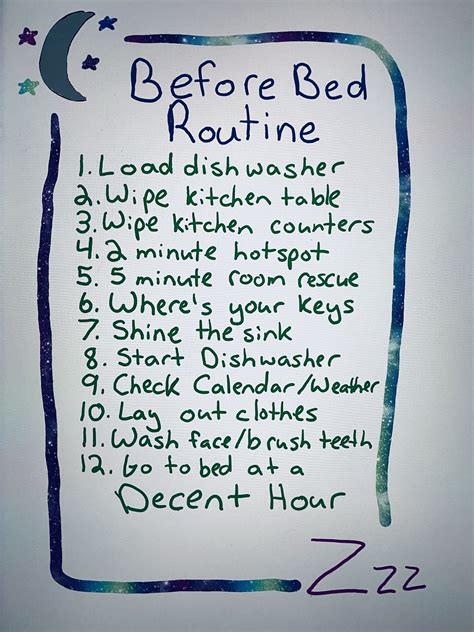 Before Bed
Routine
1. Load dishwasher
2. Wipe kitchen table
3. Wipe kitchen counters
4. 2 minute hotspot
5. 5 minute room rescue
6. Where's your keys
7. Shine the sink
8. Start Dishwasher
9. Check Calendar/Weather
10. Lay out clothes
11. Wash face/brush teeth
12. Go to bed at a
Decent Hour
Zzz